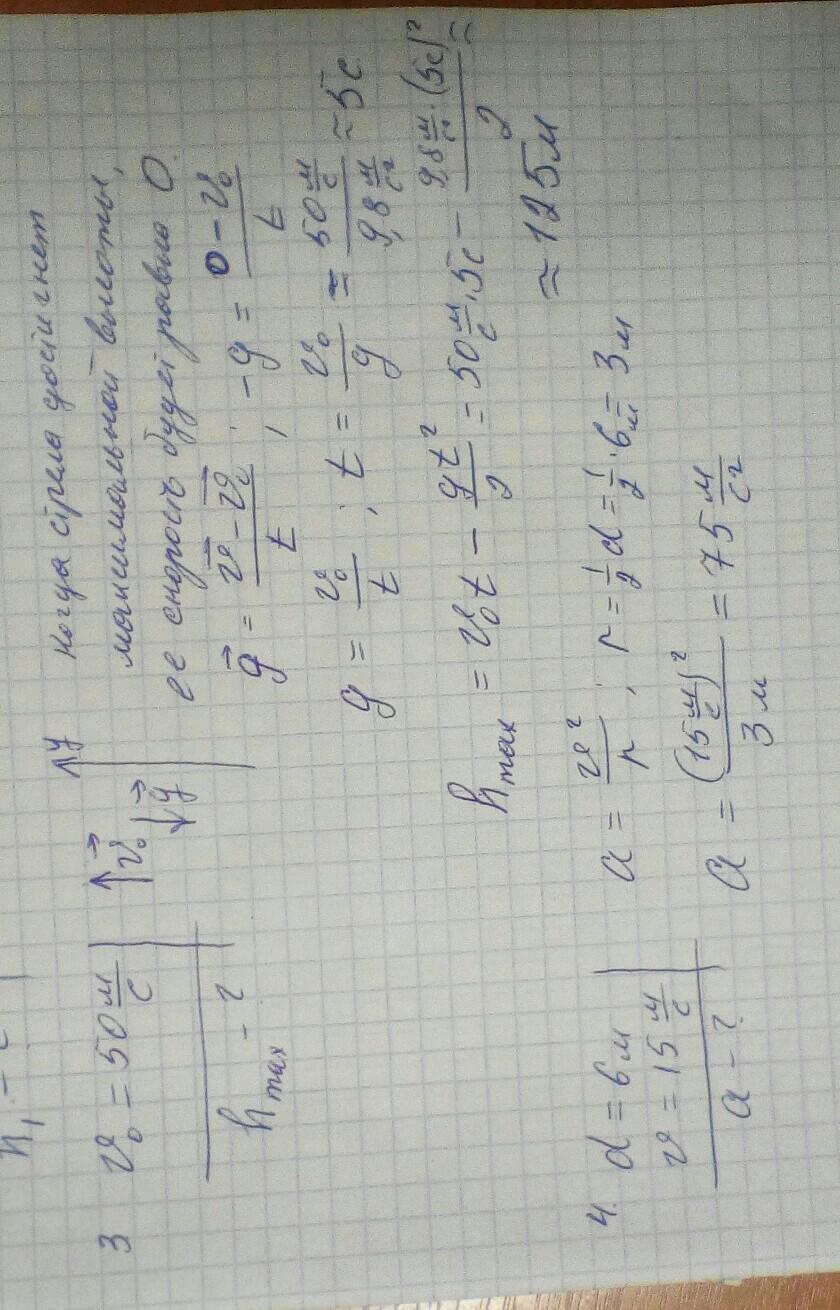 h₁ - ?
3 v₀ = 50 м/с
h max - ?
v₀ g y
Когда стрела достигнет
максимальной высоты,
ее скорость будет равна 0.
g = (v - v₀)/t ; -g = (0 - v₀)/t
g = v₀/t ; t = v₀/g ≈ (50 м/с)/(9,8 м/с²) ≈ 5с
h max = v₀t - gt²/2 = 50 м/с · 5с - (9,8 м/с² · (5с)²)/2 ≈
≈ 125м
4. d = 6м
v = 15 м/с
a - ?
a = v²/r ; r = 1/2 d = 1/2 · 6м = 3м
a = (15 м/с)²/3м = 75 м/с²